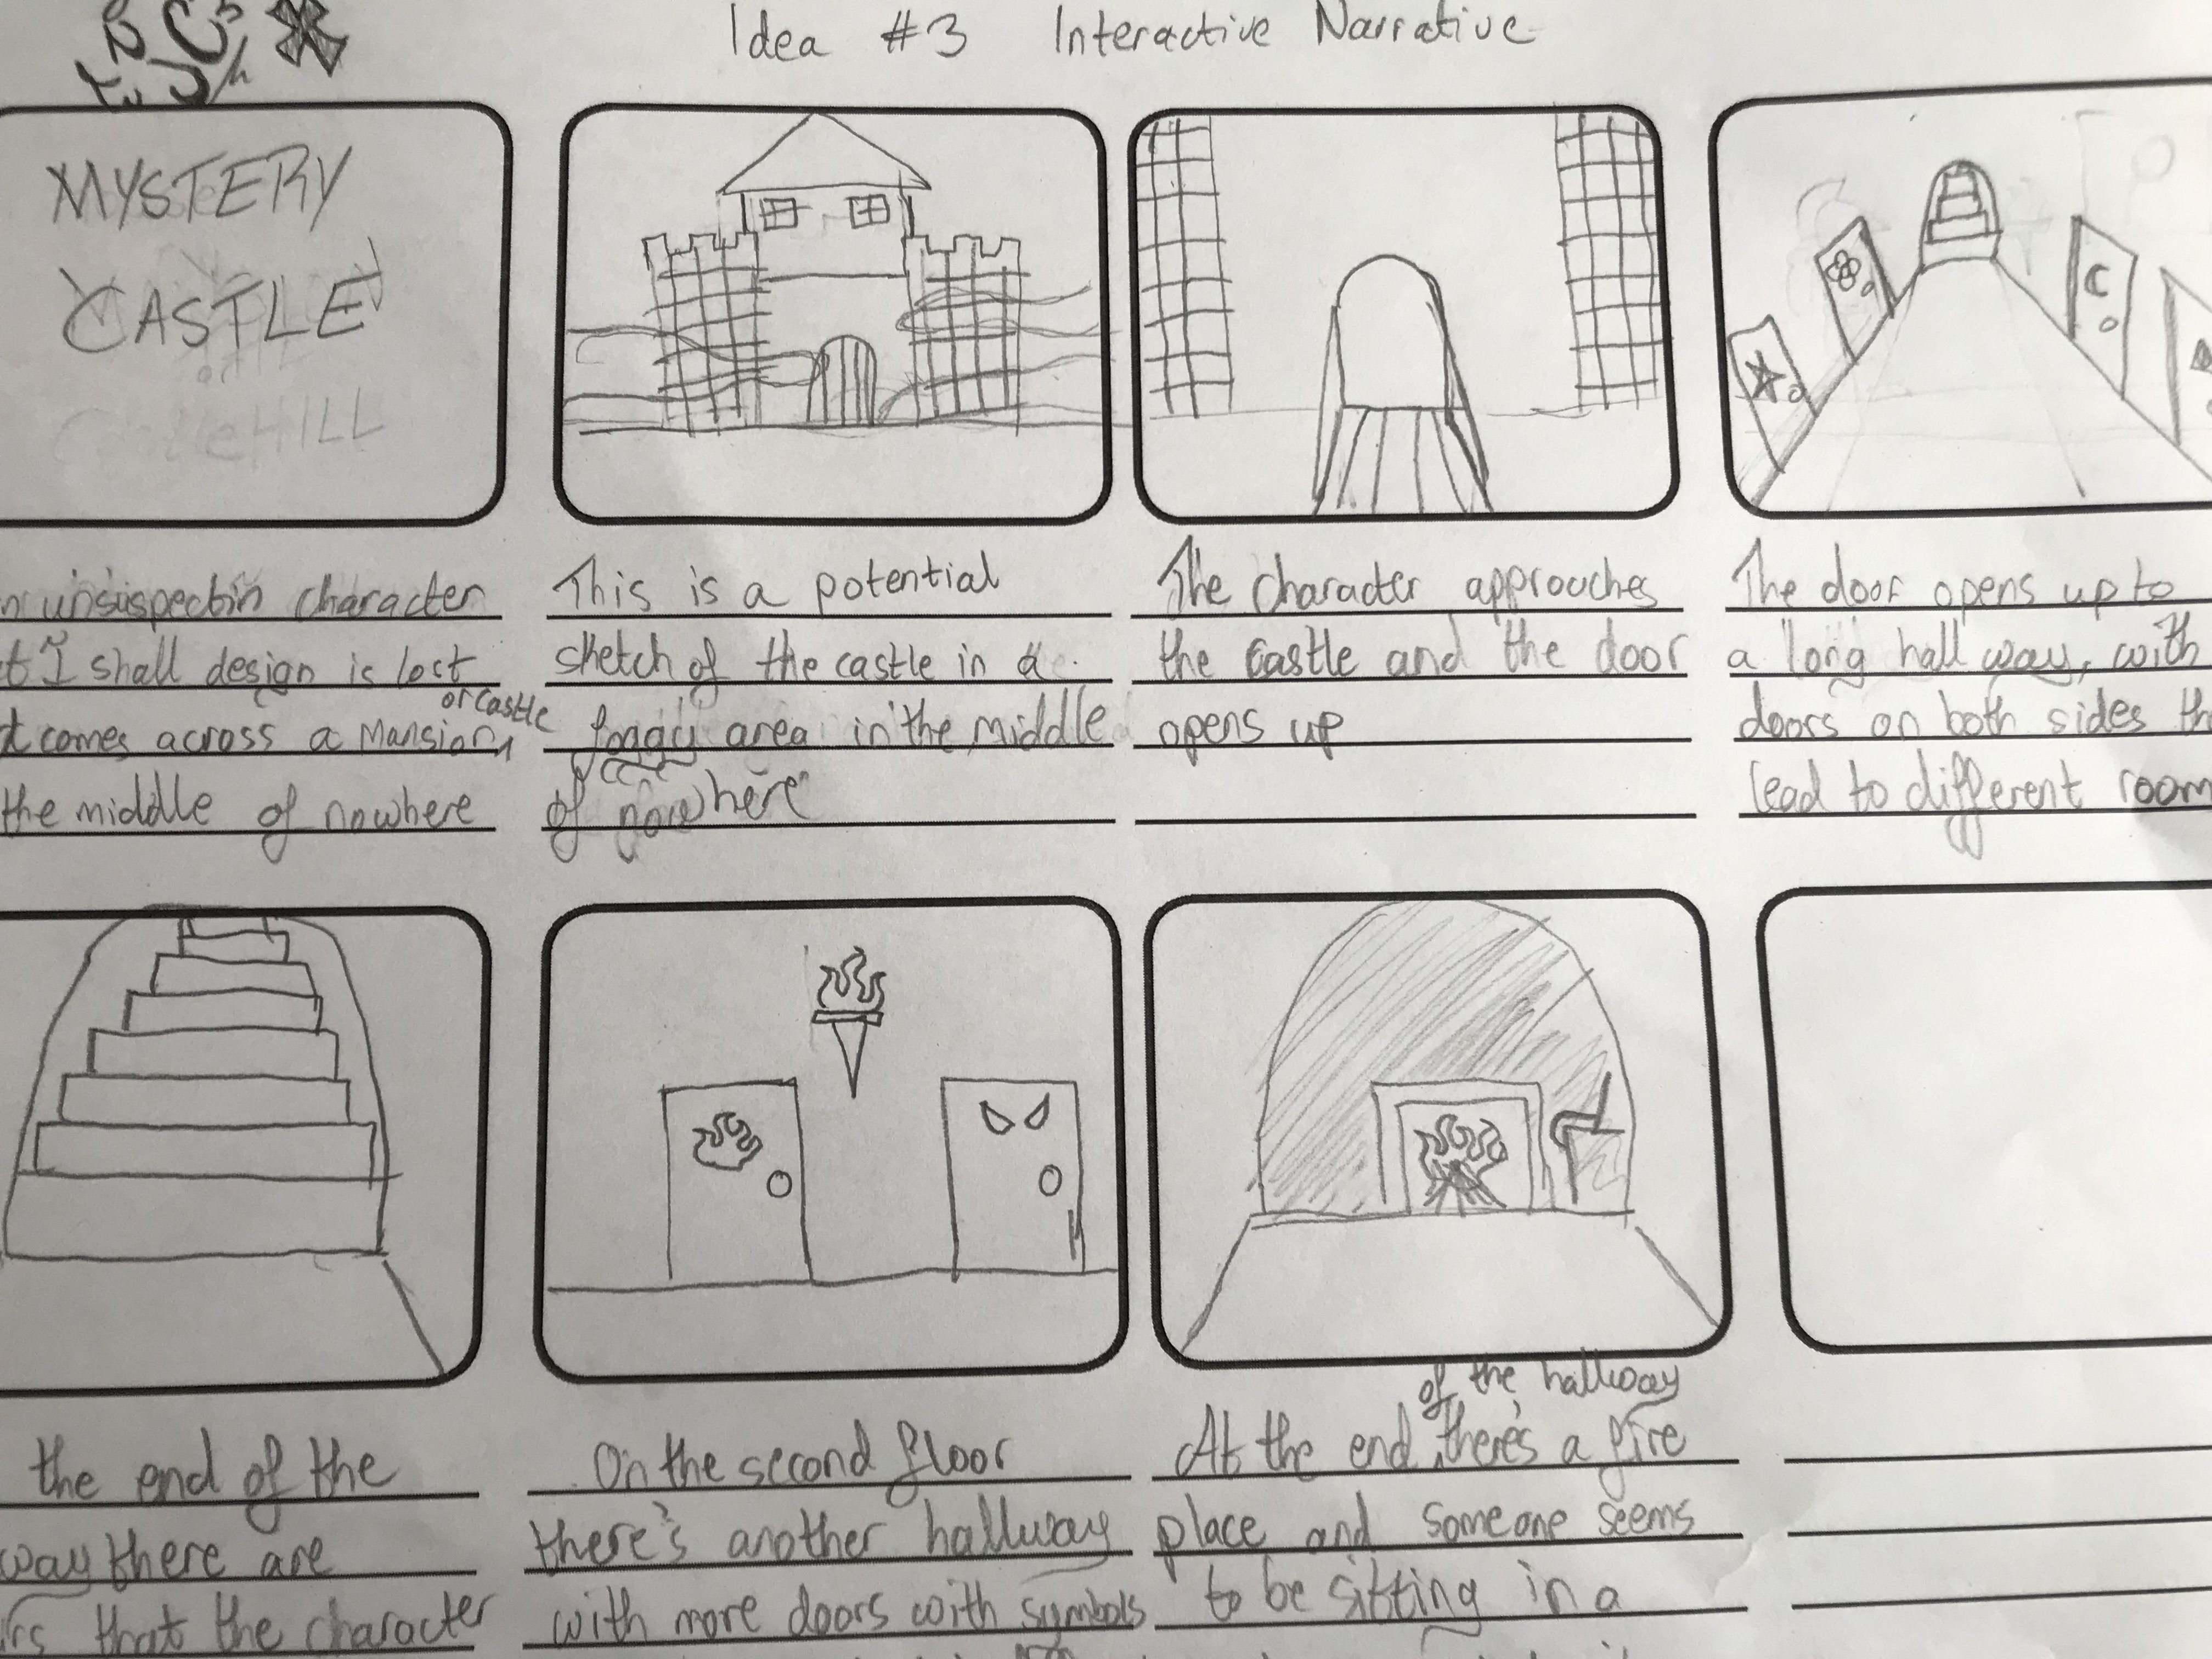 Idea #3 Interactive Narrative
MYSTERY
CASTLE
n unsuspectin character
t I shall design is lost
t comes across a Mansion or castle
the middle of nowhere
This is a potential
sketch of the castle in a
foggy area in the middle
of nowhere
The character approaches
the castle and the door
opens up
The door opens up to
a long hall way, with
doors on both sides th
lead to different room
C
the end of the
way there are
irs that the character
On the second floor
there's another hallway
with more doors with symbols
At the end of the hallway there's a fire
place and someone seems
to be sitting in a